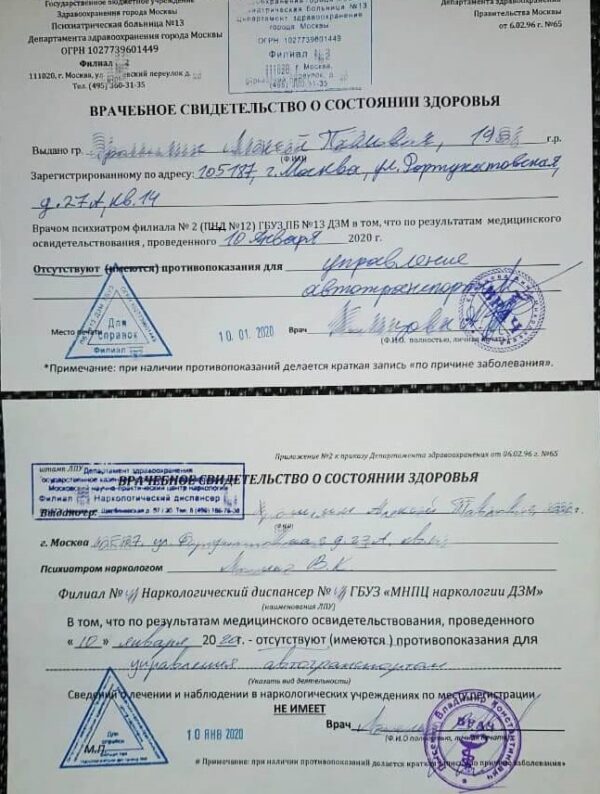 Государственное бюджетное учреждение
Здравоохранения города Москвы
Психиатрическая больница №13
Департамента здравоохранения города Москвы
ОГРН 1027739601449
Филиал
111820, г. Москва, ул. переулок д.
Тел. (495) 360-31-35
города Москвы
психиатрическая больница №13
Департамента здравоохранения
города Москвы
ОГРН 1027739601449
Филиал
г. Москва,
переулок, д.
(495) 360-31-35
Департамента здравоохранения
Правительства Москвы
от 6.02.96 г. №65
ВРАЧЕБНОЕ СВИДЕТЕЛЬСТВО О СОСТОЯНИИ ЗДОРОВЬЯ
Выдано гр. 19 г.р.
(Ф.И.О)
Зарегистрированному по адресу: 105187, г. Москва, ул. Фортунатовская,
д. 27А, кв. 14
Врачом психиатром филиала № 2 (ПНД №12) ГБУЗ ПБ №13 ДЗМ в том, что по результатам медицинского
освидетельствования, проведенного 10 января 2020 г.
Отсутствуют (имеются) противопоказания для управление
автотранспорт
Для
справок
Филиал
Место печати
10.01.2020
Врач
ВРАЧ
(Ф.И.О. полностью, личная печать)
*Примечание: при наличии противопоказаний делается краткая запись «по причине заболевания».
Приложение №2 к приказу Департамента здравоохранения от 06.02.96 г. №65
штамп ЛПУ
Департамент здравоохранения
Московский научно-практический центр наркологии
Филиал Наркологический диспансер
ВРАЧЕБНОЕ СВИДЕТЕЛЬСТВО О СОСТОЯНИИ ЗДОРОВЬЯ
Выдано гр. Алексей г.
(ФИО)
г. Москва
Психиатром наркологом В.К.
Филиал № Наркологический диспансер № ГБУЗ «МНПЦ наркологии ДЗМ»
(наименования ЛПУ)
В том, что по результатам медицинского освидетельствования, проведенного
« 10 » января 2020г. - отсутствуют (имеются) противопоказания для
управления автотранспортом
(Указать вид деятельности)
Сведений о лечении и наблюдении в наркологических учреждениях по месту регистрации
НЕ ИМЕЕТ
Для
справки
М.П.
10 ЯНВ 2020
Врач
Владимир Константинович
ВРАЧ
(Ф.И.О полностью, личная печать)
# Примечание: при наличии противопоказаний делается краткая запись «по причине заболевания»